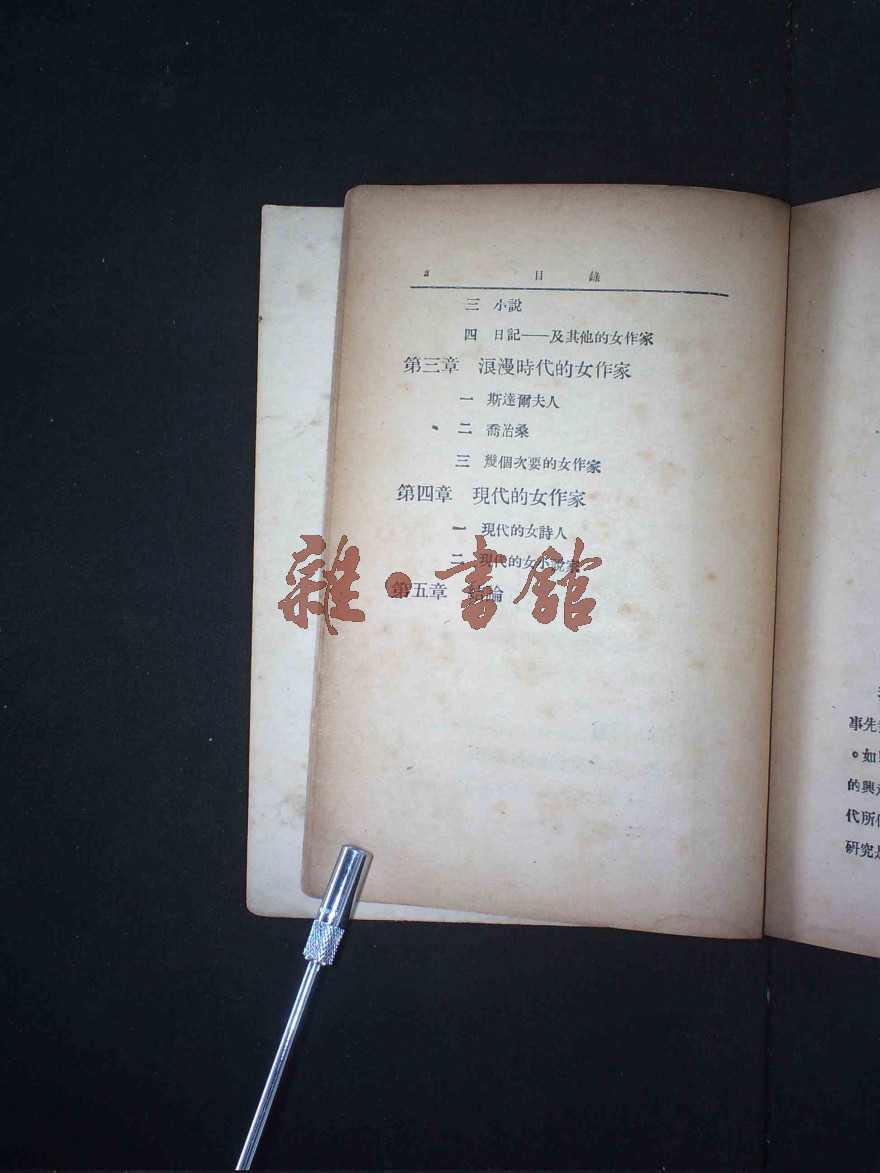 目錄
三 小說
四 日記——及其他的女作家
第三章 浪漫時代的女作家
一 斯達爾夫人
二 喬治桑
三 幾個次要的女作家
第四章 現代的女作家
一 現代的女詩人
二 現代的女小說家
第五章 結論
雜·書館
事先
。如
的興
代所
研究是